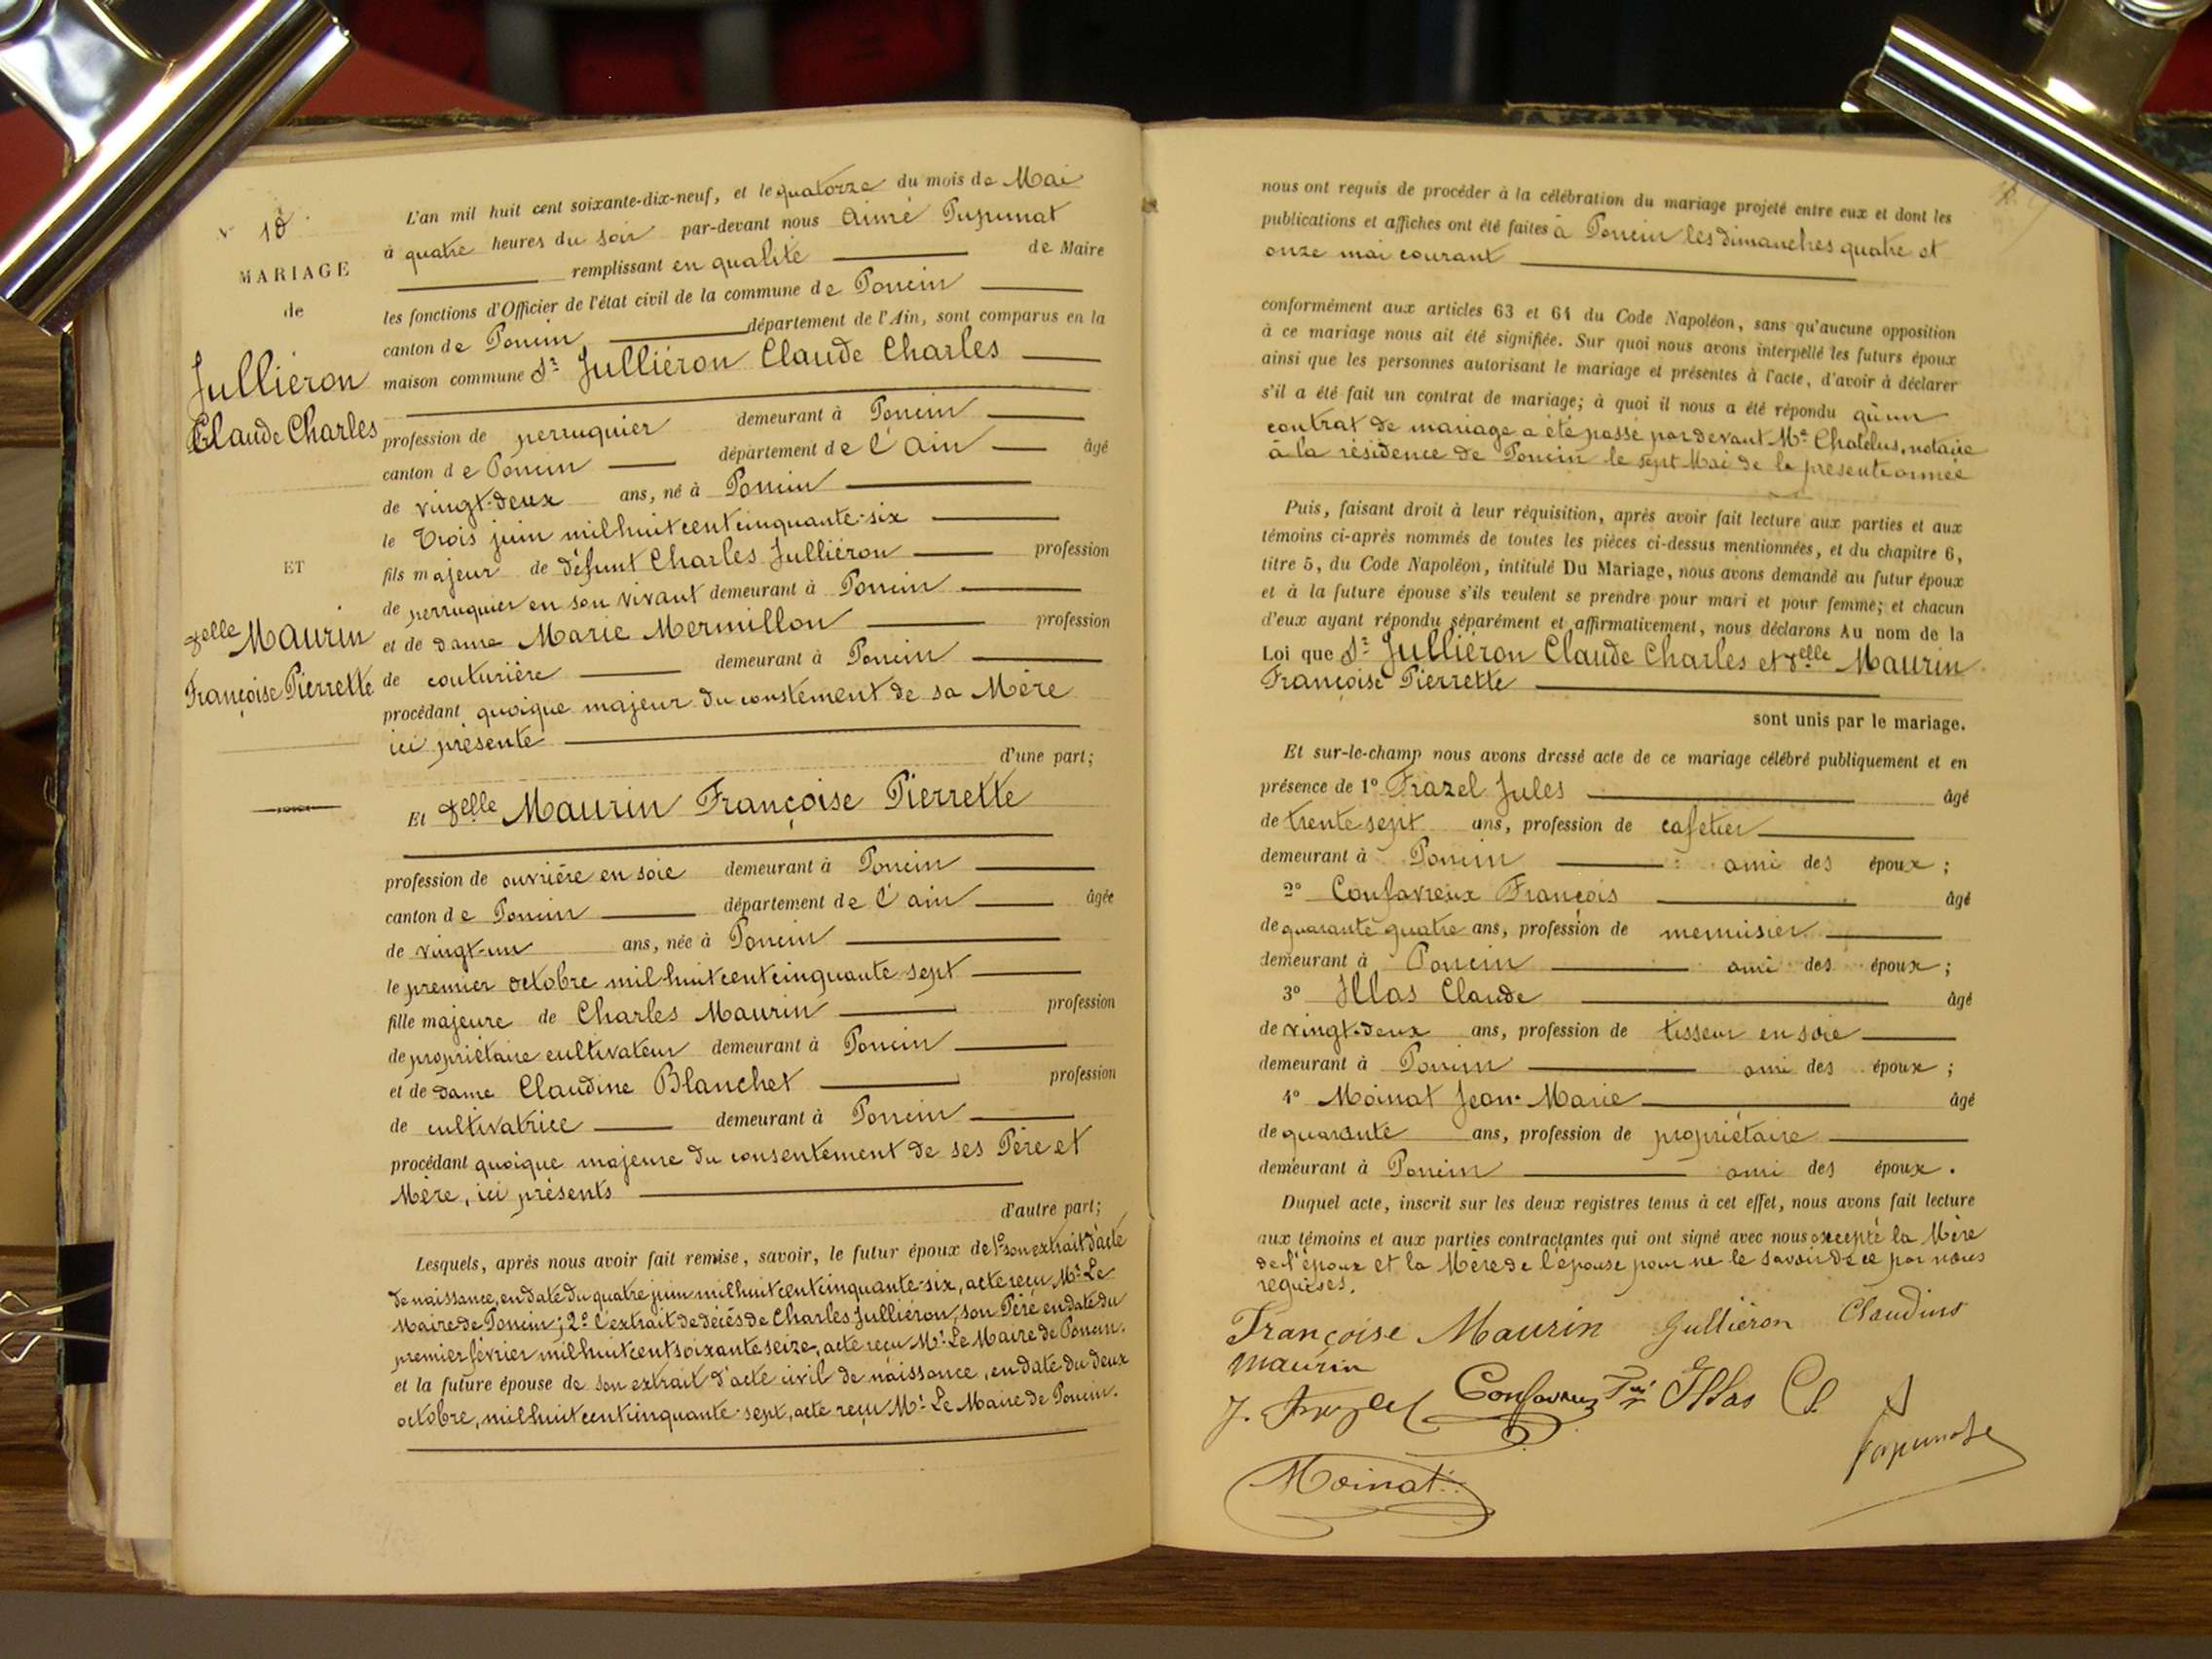 N° 10
MARIAGE
de
Julliéron
Claude Charles
ET
Delle Maurin
Françoise Pierrette
L'an mil huit cent soixante-dix-neuf, et le quatorze du mois de Mai
à quatre heures du soir par-devant nous Aimé Pupunat
remplissant en qualité de Maire
les fonctions d'Officier de l'état civil de la commune de Poncin
canton de Poncin département de l'Ain, sont comparus en la
maison commune Sr Julliéron Claude Charles
profession de perruquier demeurant à Poncin
canton de Poncin département de l'Ain âgé
de vingt-deux ans, né à Poncin
le Trois juin mil huit cent cinquante-six
fils majeur de défunt Charles Julliéron profession
de perruquier en son vivant demeurant à Poncin
et de dame Marie Mermillon profession
de couturière demeurant à Poncin
procédant quoique majeur du constement de sa Mère
ici présente
d'une part;
Et Delle Maurin Françoise Pierrette
profession de ouvrière en soie demeurant à Poncin
canton de Poncin département de l'ain âgée
de vingt-un ans, née à Poncin
le premier octobre mil huit cent cinquante sept
fille majeure de Charles Maurin profession
de propriétaire cultivateur demeurant à Poncin
et de dame Claudine Blanchet profession
de cultivatrice demeurant à Poncin
procédant quoique majeure du consentement de ses Père et
Mère, ici présents
d'autre part;
Lesquels, après nous avoir fait remise, savoir, le futur époux de 1° son extrait d'acte
de naissance, en date du quatre juin mil huit cent cinquante-six, acte reçu Mr Le
Maire de Poncin; 2° l'extrait de décès de Charles Julliéron, son Père en date du
premier février mil huit cent soixante seize, acte reçu Mr Le Maire de Poncin.
et la future épouse de son extrait d'acte civil de naissance, en date du deux
octobre, mil huit cent cinquante-sept, acte reçu Mr Le Maire de Poncin.
nous ont requis de procéder à la célébration du mariage projeté entre eux et dont les
publications et affiches ont été faites à Poncin les dimanches quatre et
onze mai courant
conformément aux articles 63 et 64 du Code Napoléon, sans qu'aucune opposition
à ce mariage nous ait été signifiée. Sur quoi nous avons interpellé les futurs époux
ainsi que les personnes autorisant le mariage et présentes à l'acte, d'avoir à déclarer
s'il a été fait un contrat de mariage; à quoi il nous a été répondu qu'un
contrat de mariage a été passé par devant Me Chatelus, notaire
à la résidence de Poncin le sept Mai de la présente année
Puis, faisant droit à leur réquisition, après avoir fait lecture aux parties et aux
témoins ci-après nommés de toutes les pièces ci-dessus mentionnées, et du chapitre 6,
titre 5, du Code Napoléon, intitulé Du Mariage, nous avons demandé au futur époux
et à la future épouse s'ils veulent se prendre pour mari et pour femme; et chacun
d'eux ayant répondu séparément et affirmativement, nous déclarons Au nom de la
Loi que Sr Julliéron Claude Charles et Delle Maurin
Françoise Pierrette
sont unis par le mariage.
Et sur-le-champ nous avons dressé acte de ce mariage célébré publiquement et en
présence de 1° Frazel Jules âgé
de trente sept ans, profession de cafetier
demeurant à Poncin ami des époux;
2° Confavreux François âgé
de quarante quatre ans, profession de menuisier
demeurant à Poncin ami des époux;
3° Illas Claude âgé
de vingt-deux ans, profession de tisseur en soie
demeurant à Poncin ami des époux;
4° Moinat Jean-Marie âgé
de quarante ans, profession de propriétaire
demeurant à Poncin ami des époux.
Duquel acte, inscrit sur les deux registres tenus à cet effet, nous avons fait lecture
aux témoins et aux parties contractantes qui ont signé avec nous excepté la Mère
de l'époux et la Mère de l'épouse pour ne le savoir de ce par nous
requises.
Françoise Maurin Julliéron Claudius
Maurin
J. Frazel Confavreux Fois Illas Cl
Pupunat
Moinat